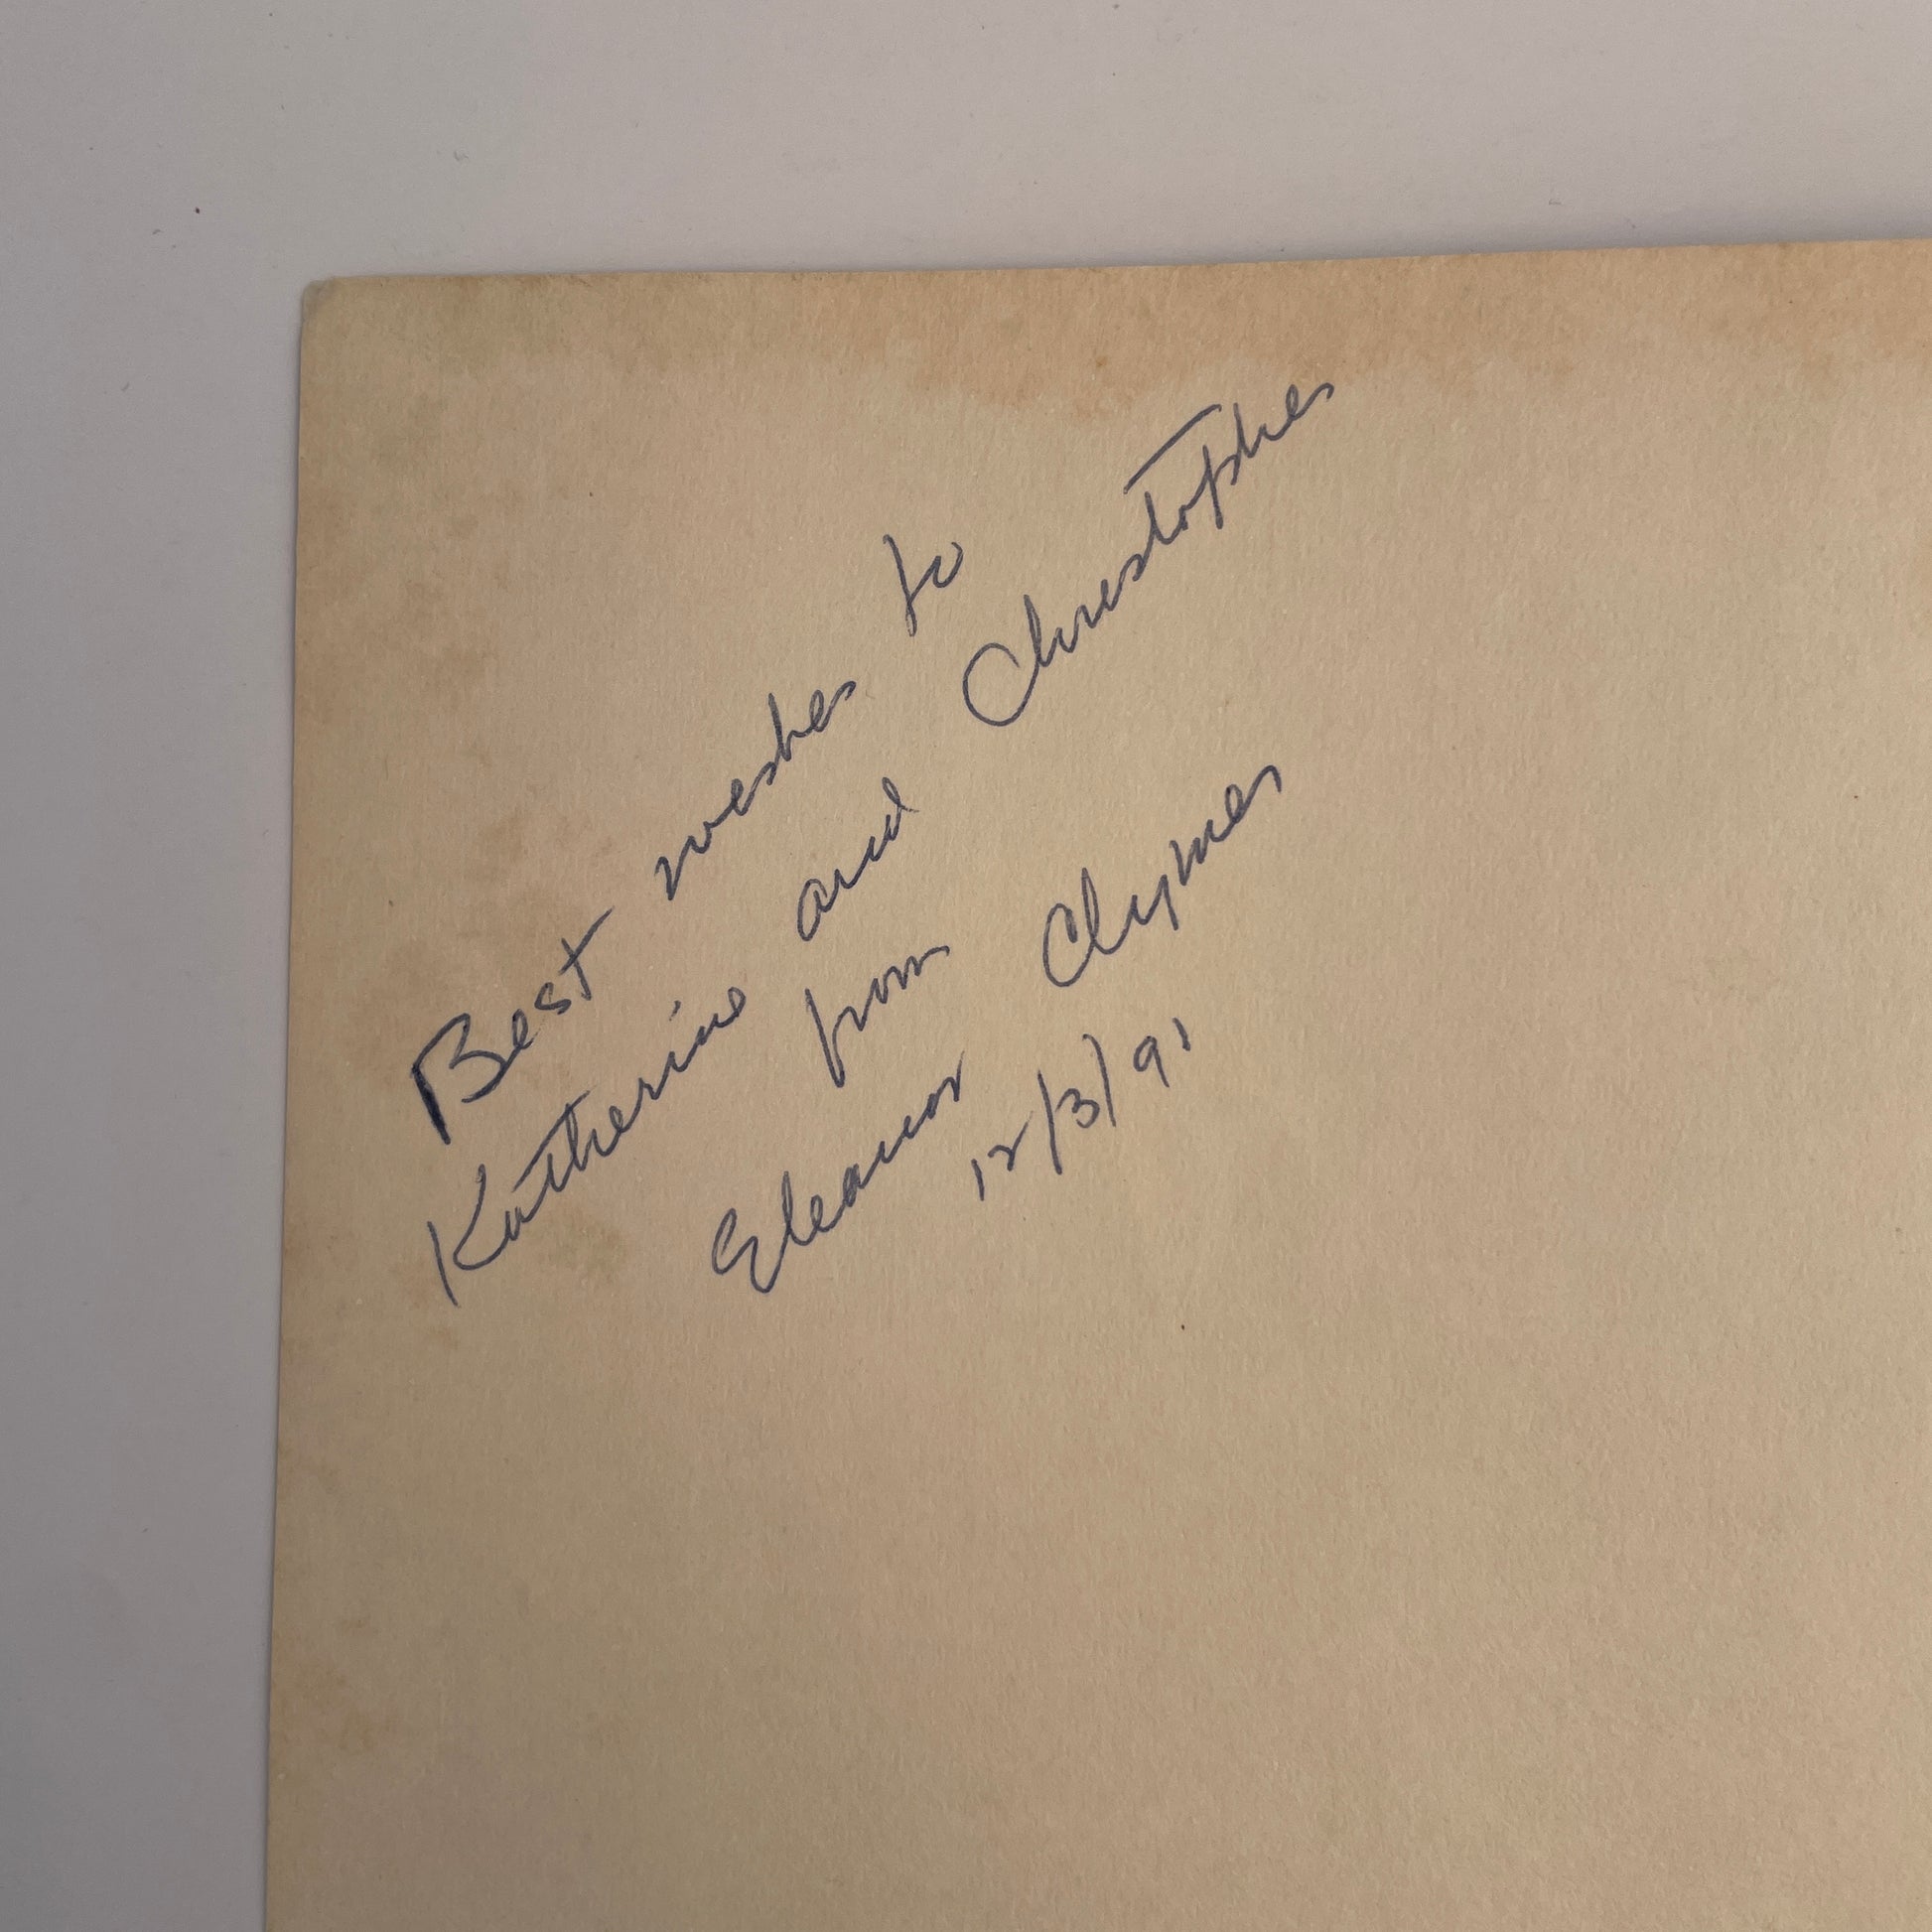 Best wishes to
Katherine and Christopher
from
Eleanor Clymer
12/3/91